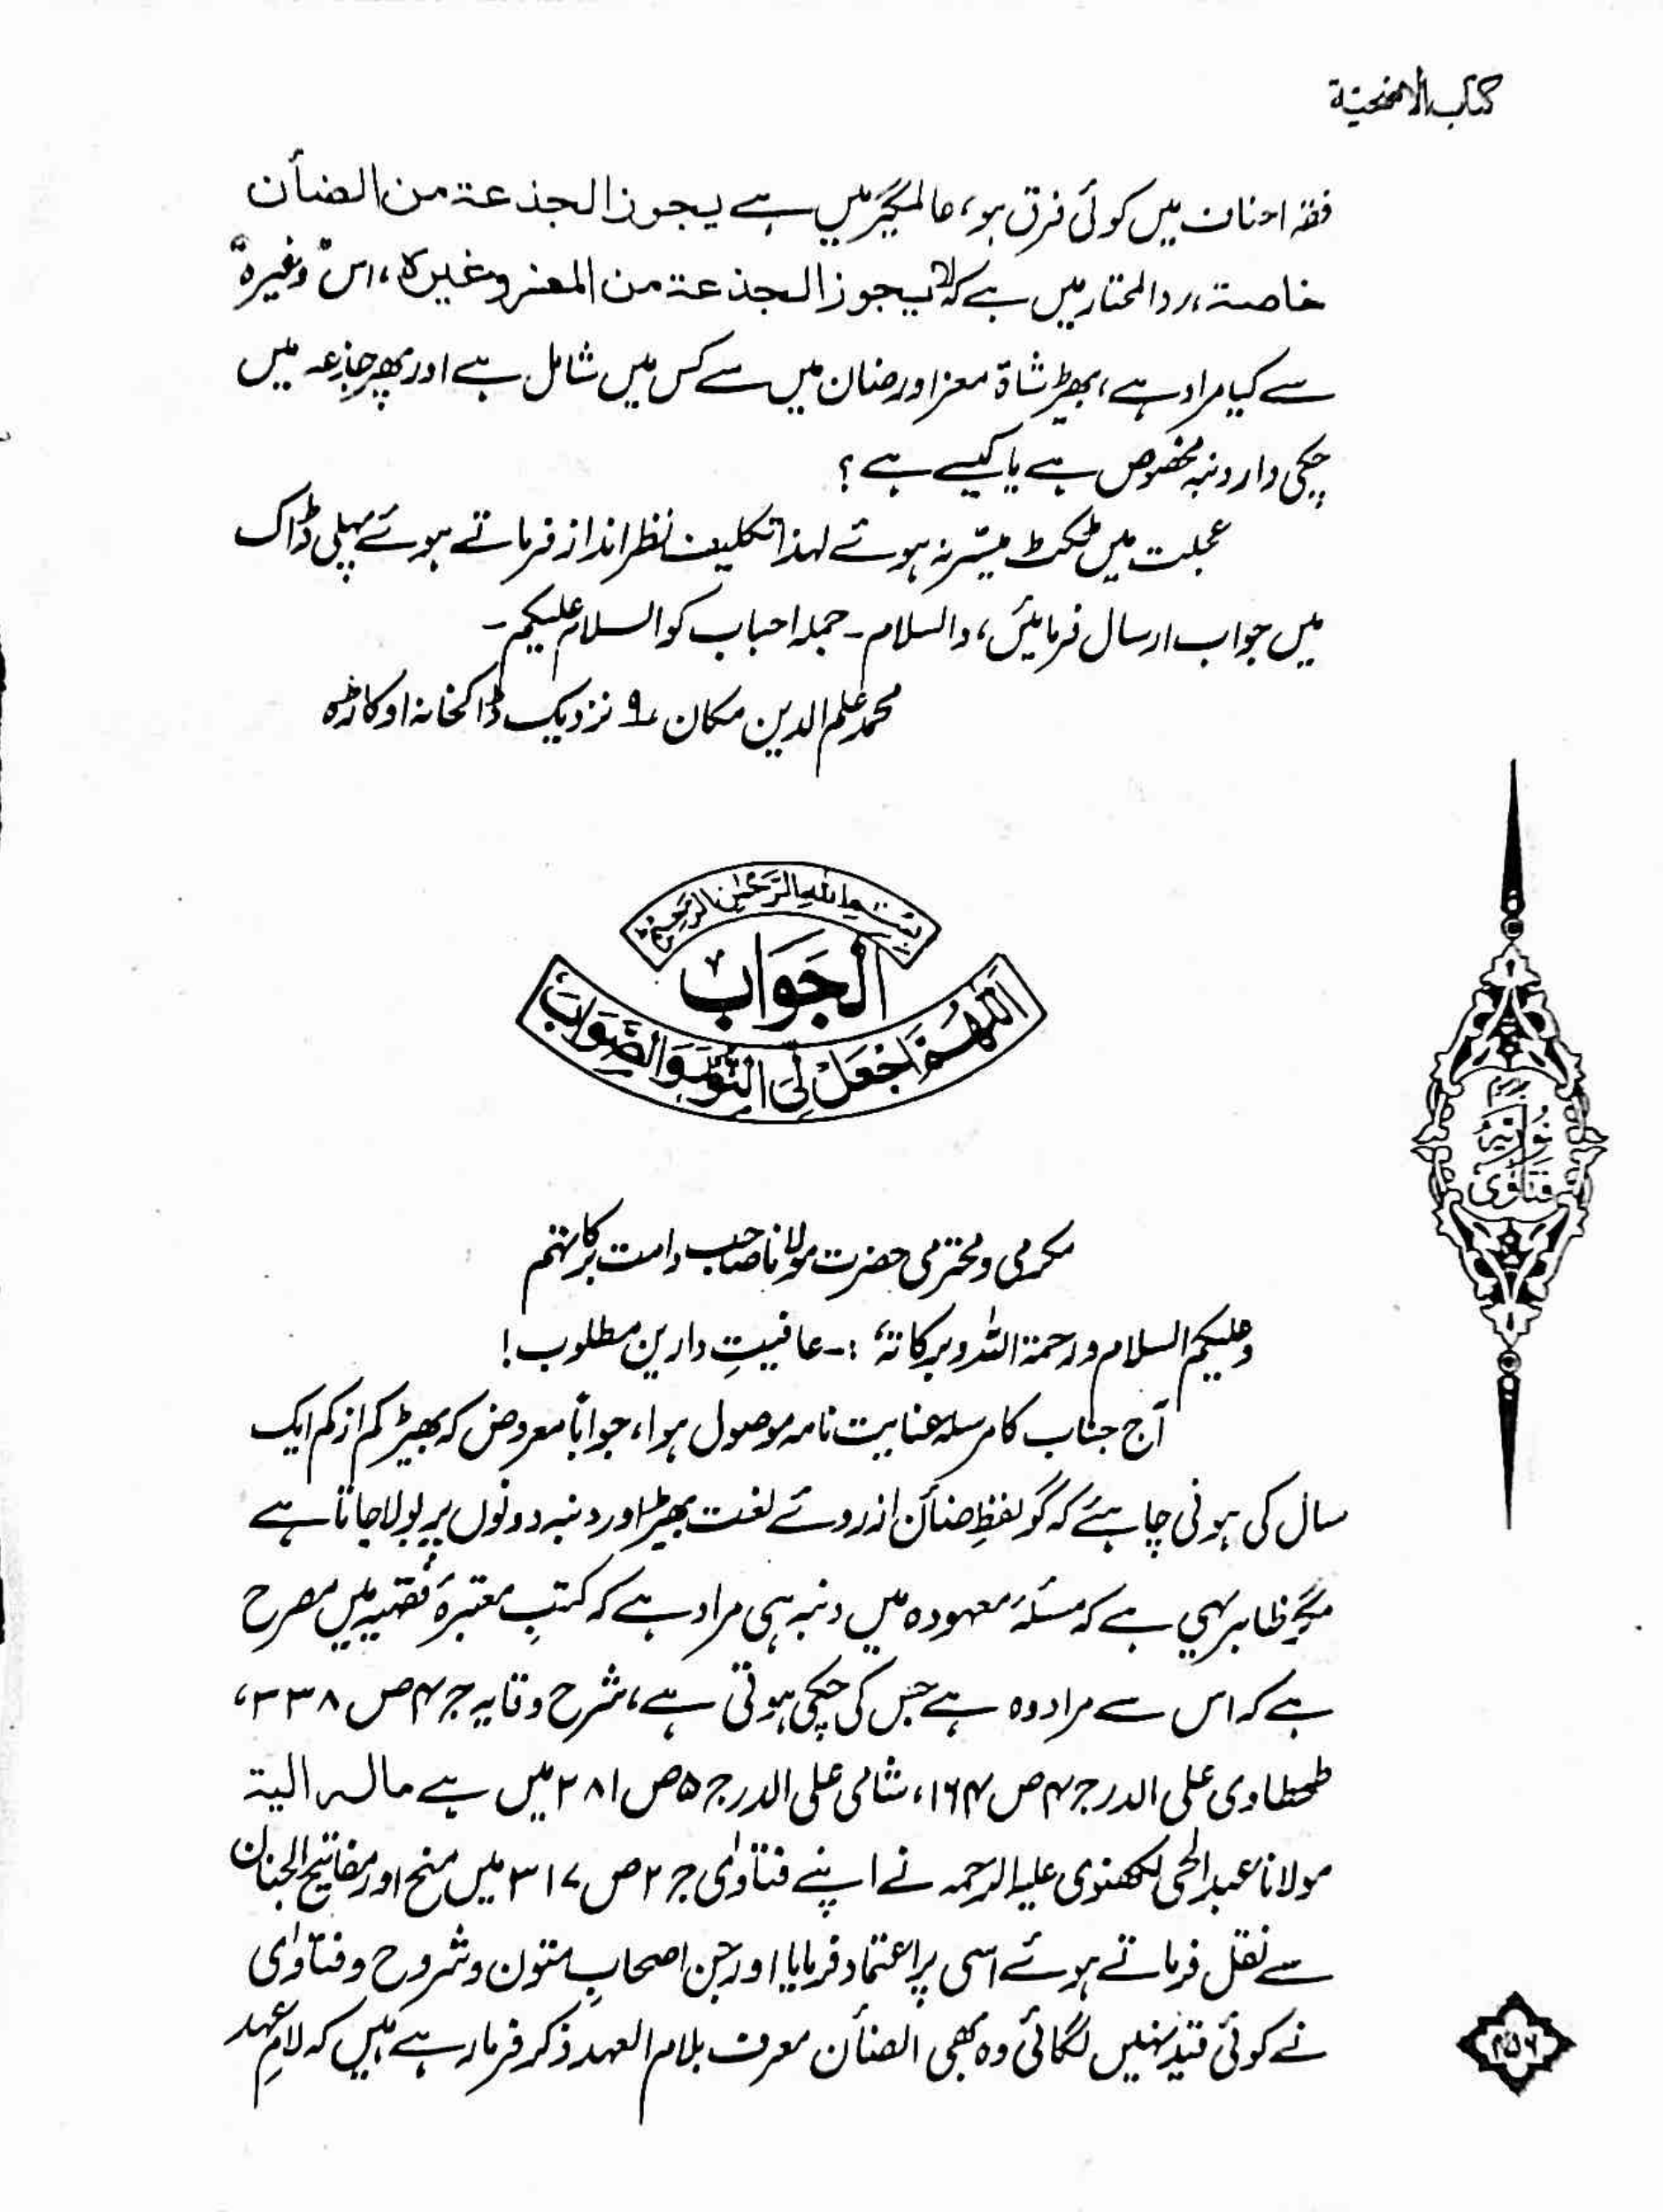 کتاب الاضحیۃ
فقہ احناف میں کوئی فرق ہو، عالمگیر میں ہے یجوز الجذعۃ من الضأن
خاصۃ، ردالمحتار میں ہے کہ لا یجوز الجذعۃ من المعز وغیرہ، اس "وغیرہ"
سے کیا مراد ہے، بھیڑ شاۃ معز اور ضان میں سے کس میں شامل ہے اور پھر جذعہ میں
چکی دار دنبہ مخصوص ہے یا کیسے ہے ؟
عجلت میں ٹکٹ میسّر نہ ہوئے لہذا تکلیف نظر انداز فرماتے ہوئے پہلی ڈاک
میں جواب ارسال فرمائیں، والسلام ۔ جملہ احباب کو السلام علیکم ۔
محمد علم الدین مکان ۹ نزدیک ڈاکخانہ اوکاڑہ
بِسْمِ اللهِ الرَّحْمٰنِ الرَّحِیْمِ
الجَوَابُ
اَللّٰهُمَّ اجْعَلْ لِیَ النُّوْرَ وَالصَّوَابَ
مکرمی و محترمی حضرت مولانا صاحب دامت برکاتہم
وعلیکم السلام ورحمۃ اللہ وبرکاتہ، :۔ عافیتِ دارین مطلوب !
آج جناب کا مرسلہ عنایت نامہ موصول ہوا، جواباً معروض کہ بھیڑ کم از کم ایک
سال کی ہونی چاہئے کہ گو لفظِ ضأن ازروئے لغت بھیڑ اور دنبہ دونوں پر بولا جاتا ہے
مگر ظاہر یہی ہے کہ مسئلہ معہودہ میں دنبہ ہی مراد ہے کہ کتبِ معتبرۂ فقہیہ میں مصرح
ہے کہ اس سے مراد وہ ہے جس کی چکی ہوتی ہے، شرح وقایہ جـ ۴ ص ۳۳۸،
طحطاوی علی الدر جـ ۴ ص ۱۶۴، شامی علی الدر جـ ۵ ص ۲۸۱ میں ہے مالہ الیۃ
مولانا عبدالحی لکھنوی علیہ الرحمہ نے اپنے فتاوٰی جـ ۲ ص ۳۱۷ میں منح اور مفاتیح الجنان
سے نقل فرماتے ہوئے اسی پر اعتماد فرمایا اور جن اصحابِ متون و شروح و فتاوٰی
نے کوئی قید نہیں لگائی وہ بھی الضأن معرف بلام العہد ذکر فرما رہے ہیں کہ لامِ عہد
فتاوٰی نوریہ
۴۵۶